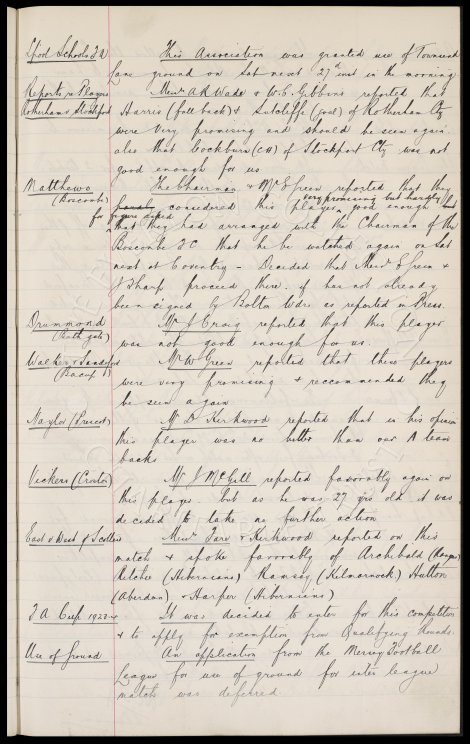 Lpool Schools F A
This Association was granted use of Townsend
Lane ground on Sat next 27th inst in the morning
Reports re Players
Messrs A R Wade & W C Gibbins reported that
Rotherham v Stockport
Harris (full back) & Sutcliffe (goal) of Rotherham Cty
were very promising and should be seen again.
also that Cockburn (CH) of Stockport Cty was not
good enough for us
Matthews
(Boscombe)
The Chairman & Mr E Green reported that they
considered this player very promising but hardly good enough
for figure asked
that they had arranged with the Chairman of the
Boscombe F C that he be watched again on Sat
next at Coventry - Decided that Messrs E Green &
J Sharp proceed there. if has not already
been signed by Bolton Wdrs as reported in Press.
Drummond
(Bathgate)
Mr J Craig reported that this player
was not good enough for us.
Walker & Sandiford
(Bacup B)
Mr W Green reported these players
were very promising & reccommended they
be seen again
Naylor (Prescot)
Mr D Kirkwood reported that in his opinion
this player was no better than our A team
backs
Vickers (Croston)
Mr J McGill reported favorably again on
this player. but as he was 27 yrs old it was
decided to take no further action
East v West of Scotland
Messrs Fare & Kirkwood reported on this
match & spoke favorably of Archibald (Rangers)
(Hibernians) Ramsay (Kilmarnock) Hutton
(Aberdeen) & Harper (Hibernians)
F A Cup 1923-4
It was decided to enter for this competition
& to apply for exemption from Qualifying Rounds.
Use of Ground
An application from the Mersey Football
League for use of ground for inter league
match was deferred.